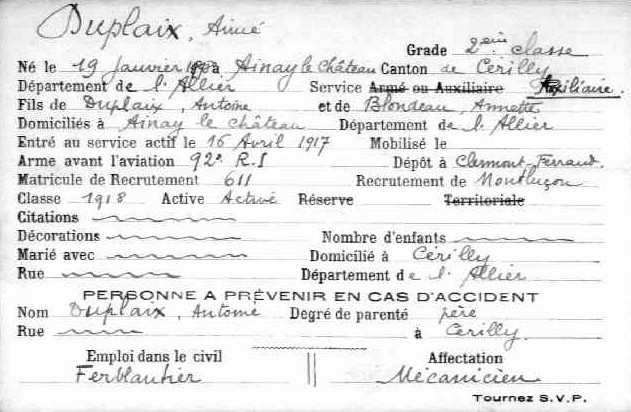 Duplaix, Aimé
Grade 2ème classe
Né le 19 Janvier à Ainay le Château Canton de Cerilly
Département de l'Allier Service Armé ou Auxiliaire Auxiliaire.
Fils de Duplaix, Antoine et de Blondeau, Annette
Domiciliés à Ainay le château Département de l'Allier
Entré au service actif le 16 Avril 1917 Mobilisé le
Arme avant l'aviation 92e R.I Dépôt à Clermont-Ferrand.
Matricule de Recrutement 611 Recrutement de Montluçon
Classe 1918 Active Active Réserve Territoriale
Citations
Décorations Nombre d'enfants
Marié avec Domicilié à Cérilly
Rue Département de l'Allier
PERSONNE A PRÉVENIR EN CAS D'ACCIDENT
Nom Duplaix, Antoine Degré de parenté père
Rue à Cerilly.
Emploi dans le civil Affectation
Ferblantier Mécanicien.
Tournez S.V.P.